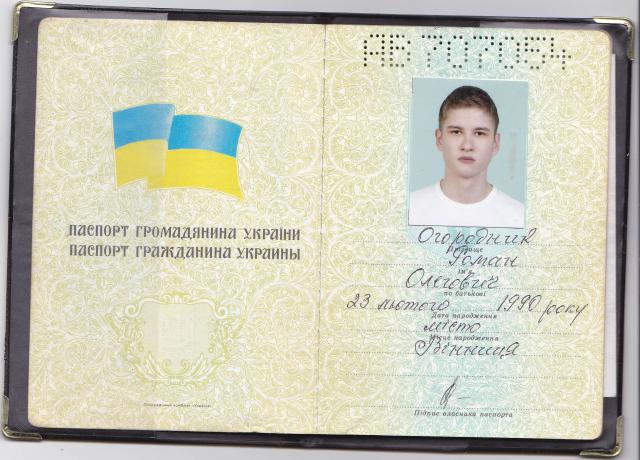 ПАСПОРТ ГРОМАДЯНИНА УКРАЇНИ
ПАСПОРТ ГРАЖДАНИНА УКРАИНЫ
АВ 707054
Огородник
Прізвище
Роман
Ім'я
Олегович
по батькові
23 лютого 1990 року
Дата народження
місто
Місце народження
Вінниця
Підпис власника паспорта